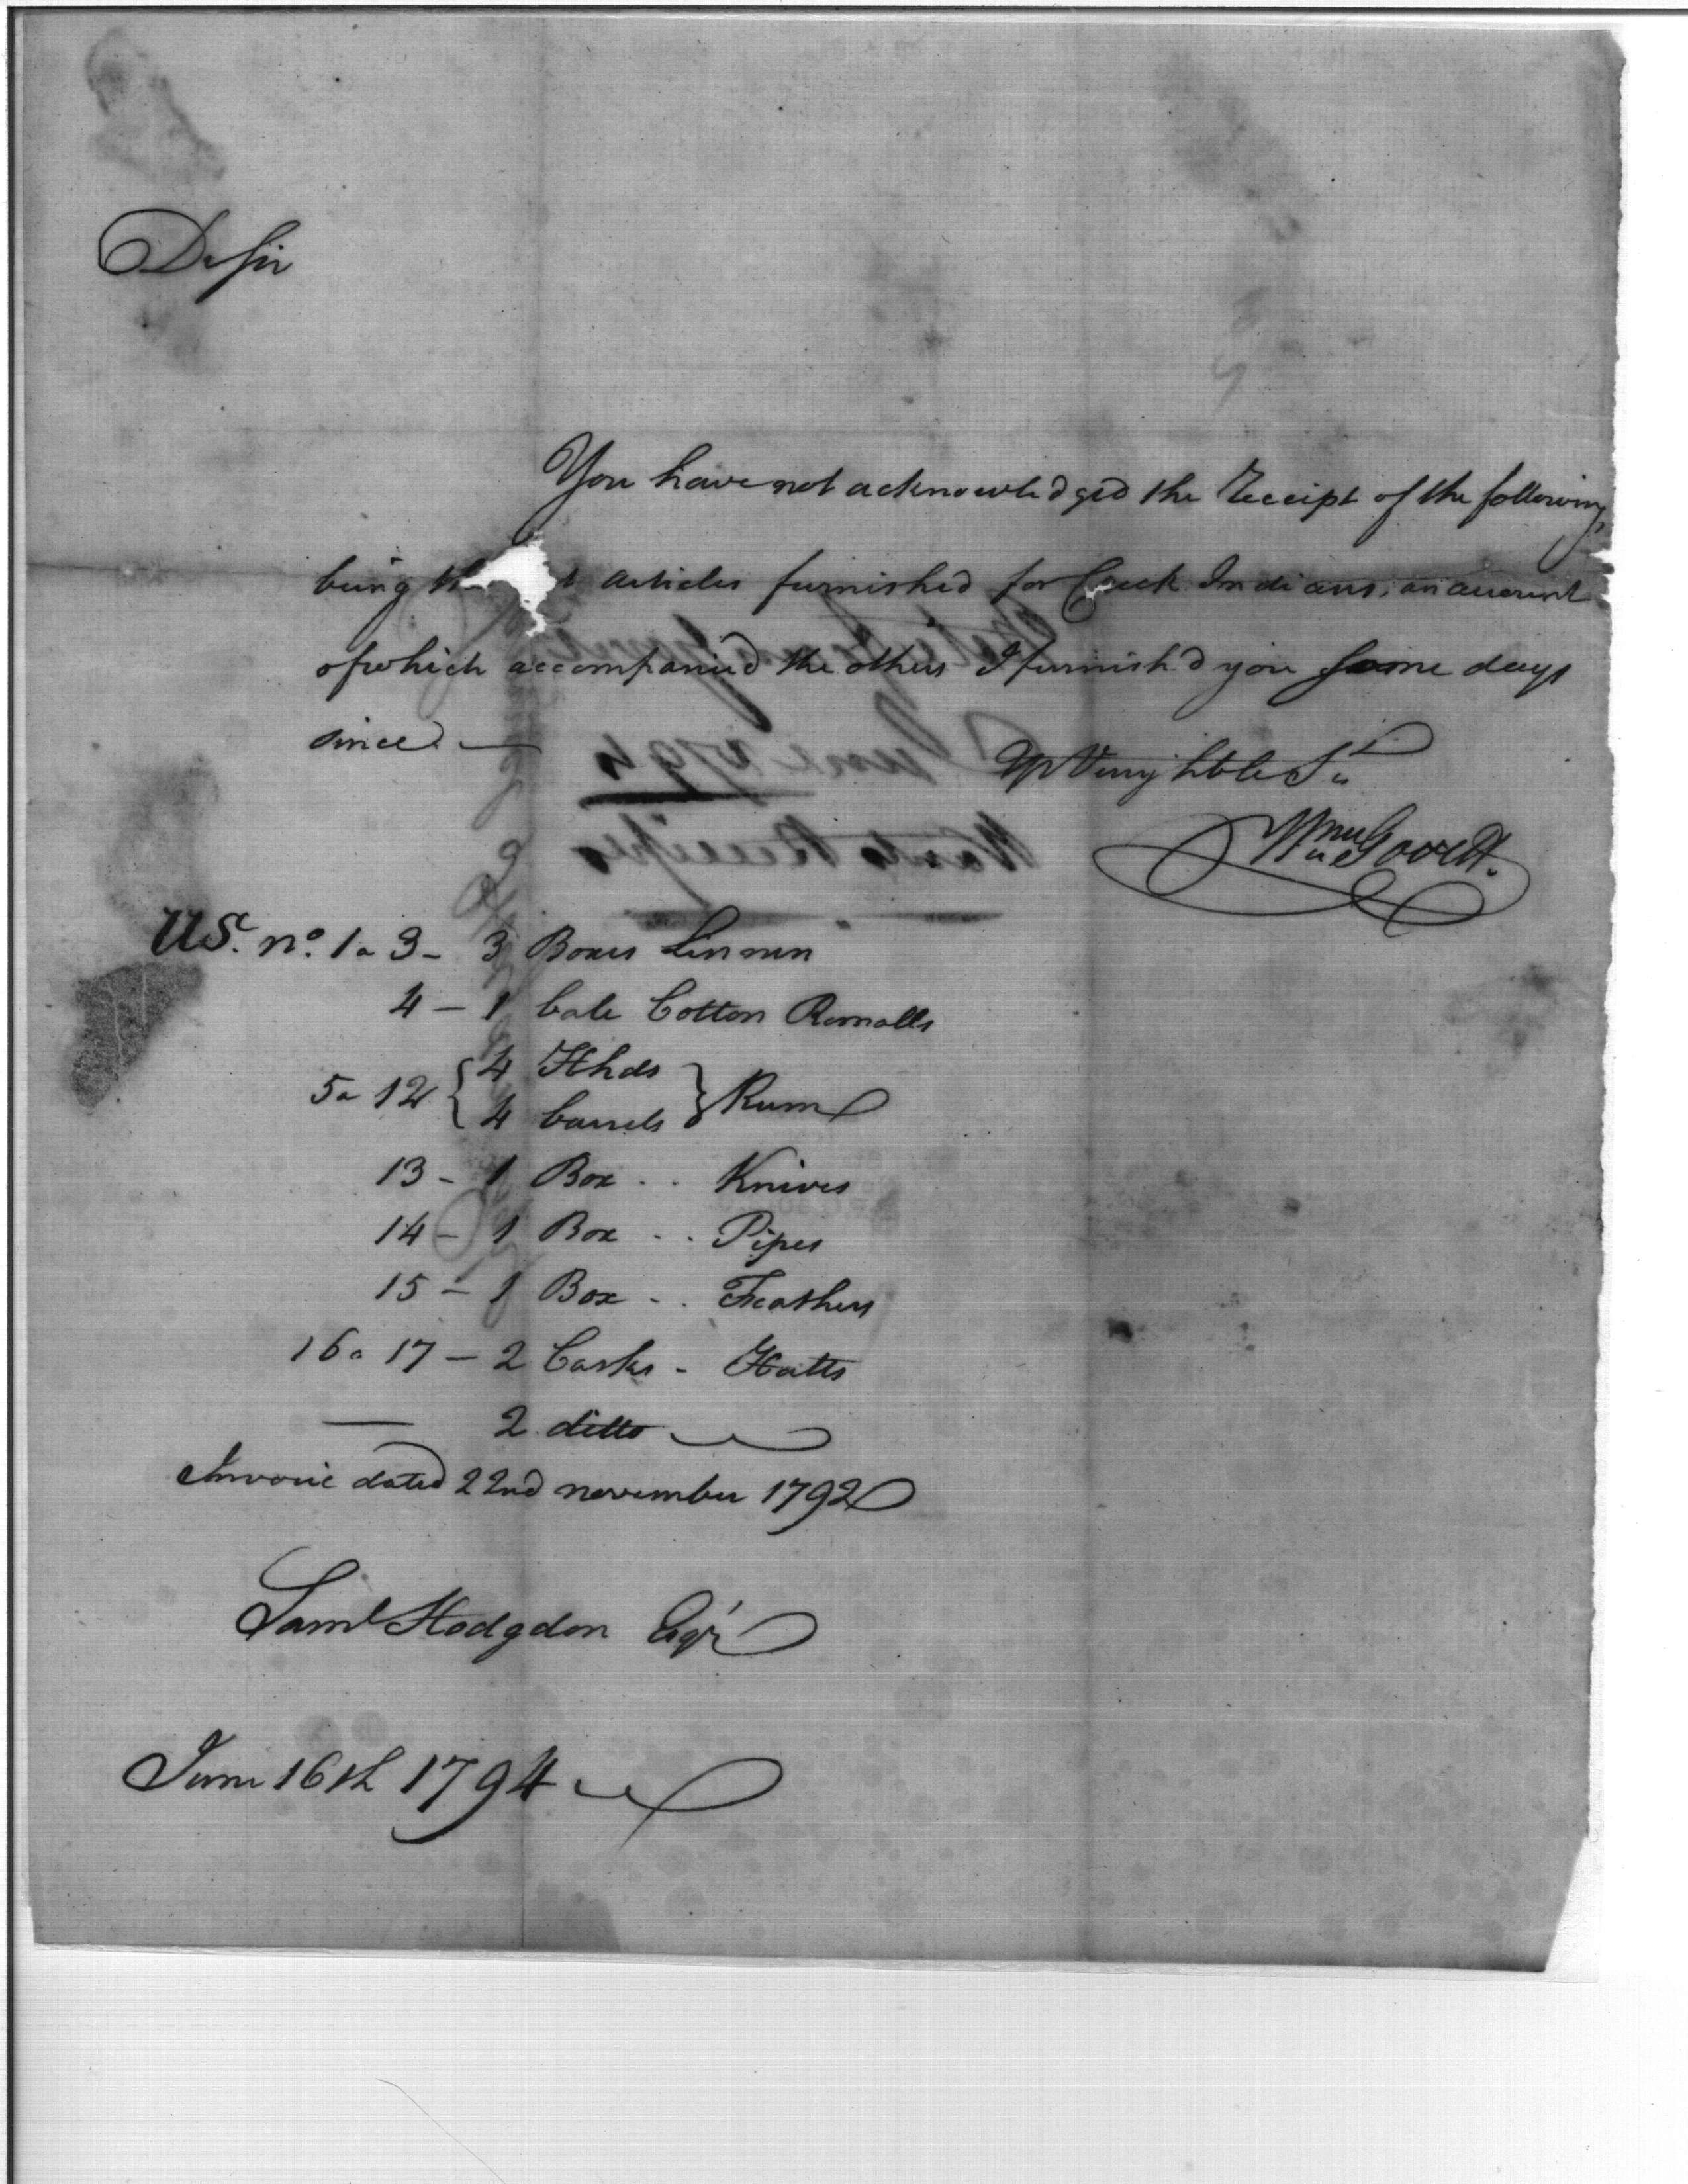 Dr Sir
You have not acknowledged the Receipt of the following,
being th t articles furnished for Creek Indians, an account
of which accompanied the others I furnish'd you some days
since. —
Yr Very hble St
US. no. 1 a 3 - 3 Boxes Linnen
4 - 1 bale Cotton Romalls
5 a 12 { 4 Hhds
4 barrels } Rum
13 - 1 Box . . Knives
14 - 1 Box . . Pipes
15 - 1 Box . . Feathers
16 a 17 - 2 Casks - Hatts
— 2 ditto
Invoice dated 22nd november 1792
Saml Hodgdon Esqr
June 16th 1794
June 1794
Wants Receipts